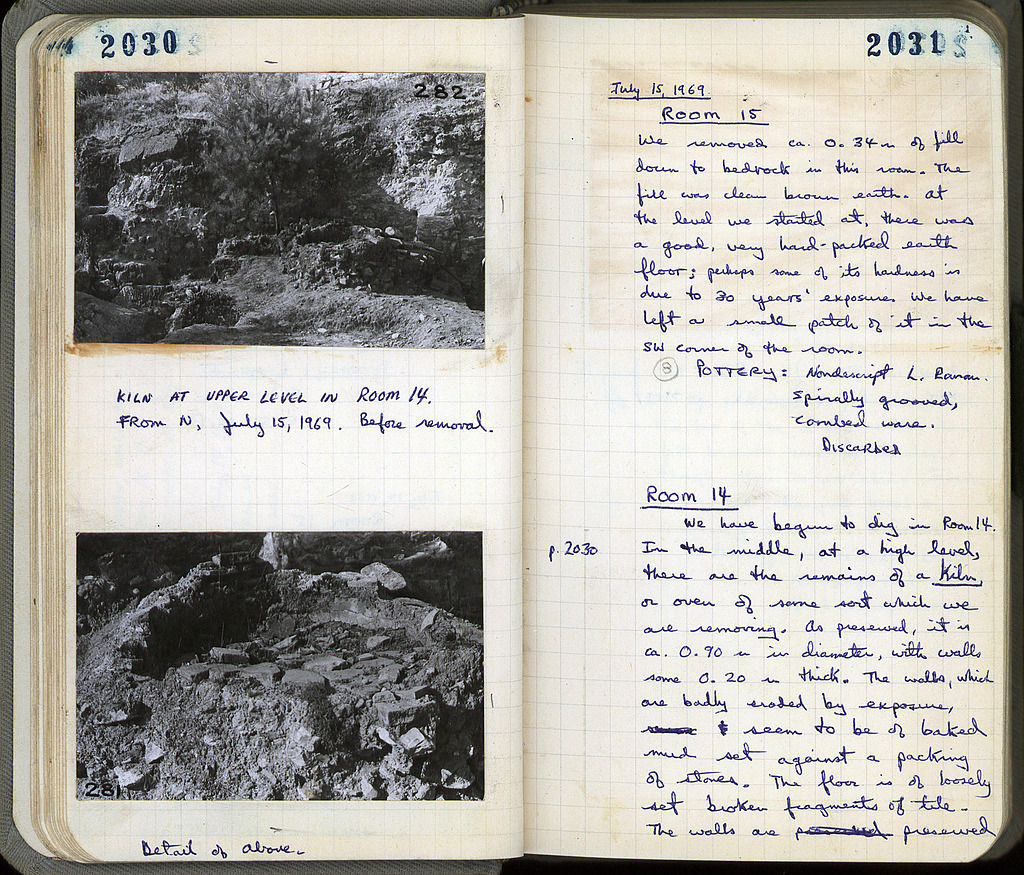 2030
282
KILN AT UPPER LEVEL IN ROOM 14.
FROM N, July 15, 1969. Before removal.
281
Detail of above.
2031
July 15, 1969.
Room 15
We removed ca. 0.34 m of fill
down to bedrock in this room. The
fill was clean brown earth. At
the level we started at, there was
a good, very hard-packed earth
floor; perhaps some of its hardness is
due to 30 years' exposure. We have
left a small patch of it in the
SW corner of the room.
8 POTTERY: Nondescript L. Roman.
Spirally grooved,
combed ware.
DISCARDED
Room 14
We have begun to dig in Room 14.
p. 2030 In the middle, at a high level,
there are the remains of a Kiln,
or oven of some sort which we
are removing. As preserved, it is
ca. 0.90 m in diameter, with walls
some 0.20 m thick. The walls, which
are badly eroded by exposure,
seem to be of baked
mud set against a packing
of stones. The floor is of loosely
set broken fragments of tile.
The walls are preserved